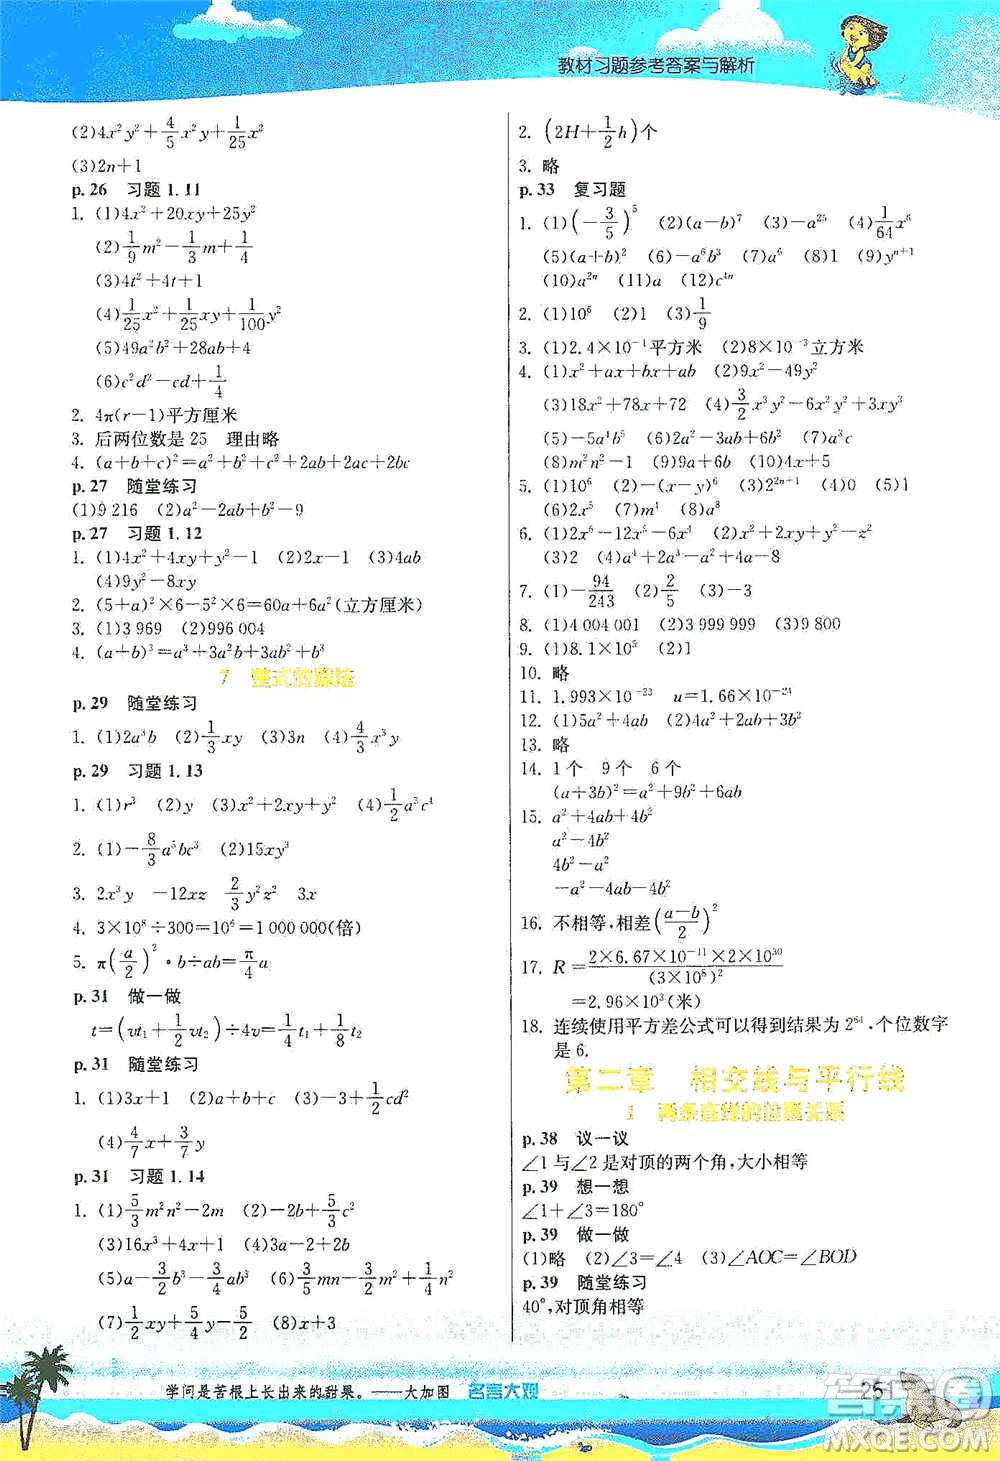 教材习题参考答案与解析
(2)4x²y²+4/5x²y+1/25x²
(3)2n+1
p.26 习题 1.11
1. (1)4x²+20xy+25y²
(2)1/9m²-1/3m+1/4
(3)4t²+4t+1
(4)1/25x²+1/25xy+1/100y²
(5)49a²b²+28ab+4
(6)c²d²-cd+1/4
2. 4π(r-1)平方厘米
3. 后两位数是 25 理由略
4. (a+b+c)²=a²+b²+c²+2ab+2ac+2bc
p.27 随堂练习
(1)9 216 (2)a²-2ab+b²-9
p.27 习题 1.12
1. (1)4x²+4xy+y²-1 (2)2x-1 (3)4xy
(4)9y²-8xy
2. (5+a)²×6-5²×6=60a+6a²(立方厘米)
3. (1)3 969 (2)996 004
4. (a+b)³=a³+3a²b+3ab²+b³
7 整式的除法
p.29 随堂练习
1. (1)2a³b (2)1/3xy (3)3n (4)4/3x³y
p.29 习题 1.13
1. (1)r³ (2)y (3)x²+2xy+y² (4)1/2a³c⁴
2. (1)-8/3a⁵bc³ (2)15xy³
3. 2x³y -12xz 2/3y²z² 3x
4. 3×10⁸÷300=10⁶=1 000 000(倍)
5. π(a/2)²·b÷ab=π/4a
p.31 做一做
t=(vt₁+1/2vt₂)÷4v=1/4t₁+1/8t₂
p.31 随堂练习
1. (1)3x+1 (2)a+b+c (3)-3+1/2cd²
(4)4/7x+3/7y
p.31 习题 1.14
1. (1)5/3m²n²-2m (2)-2b+5/3c²
(3)16x³-8x²+4x (4)3a-2b+1
(5)a-1/2b³-3/4ab³ (6)3/5mn-1/2m-2
(7)1/2xy+5/4y-5/2 (8)x+3
2. (2H+1/2h)个
3. 略
p.33 复习题
1. (1)(-3/5)⁵ (2)(a-b)⁷ (3)-a²⁵ (4)1/64x⁶
(5)(a+b)² (6)-a⁶b³ (7)a⁶ (8)1 (9)yⁿ⁺¹
(10)a²ⁿ (11)a (12)c⁴ⁿ
2. (1)10⁶ (2)1 (3)1/9
3. (1)2.4×10⁻¹平方米 (2)8×10⁻³立方米
4. (1)x²+ax+bx+ab (2)9x²-49y²
(3)18x²+78x+72 (4)3/2x³y²-6x²y²+3xy³
(5)-5a¹b⁵ (6)2a²-3ab+6b² (7)a³c
(8)m²n²-1 (9)4xy (10)4x+5
5. (1)10⁶ (2)-(x-y)⁶ (3)2²ⁿ⁺¹ (4)0 (5)1
(6)2x⁵ (7)m¹ (8)a⁸
6. (1)2x⁶-12x⁵-6x⁴ (2)-x²+2xy+z²
(3)2 (4)a⁴+2a³-a²+4a-8
7. (1)-94/243 (2)2/5 (3)-3
8. (1)4 004 001 (2)3 999 999 (3)9 800
9. (1)8.1×10⁵ (2)1
10. 略
11. 1.993×10⁻²³ u=1.66×10⁻²⁴
12. (1)5a²+4ab (2)4a²+2ab+2a
13. 略
14. 1个 9个 6个
(a+3b)²=a²+9b²+6ab
15. a²+4ab+4b²
a²-4b²
4b²-a²
-a²-4ab-4b²
16. 不相等,相差(a-b/2)²
17. R=2×6.67×10⁻¹¹×2×10³⁰/(3×10⁸)²
=2.96×10³(米)
18. 连续使用平方差公式可以得到结果为 2⁶⁴,个位数字
是 6.
第二章 相交线与平行线
1 两条直线的位置关系
p.38 议一议
∠1与∠2是对顶的两个角,大小相等
p.39 想一想
∠1+∠3=180°
p.39 做一做
(1)略 (2)∠3=∠4 (3)∠AOC=∠BOD
p.39 随堂练习
40°,对顶角相等
学问是苦根上长出来的甜果。——大加图 名言大观
251
答案圈
MXQE.COM